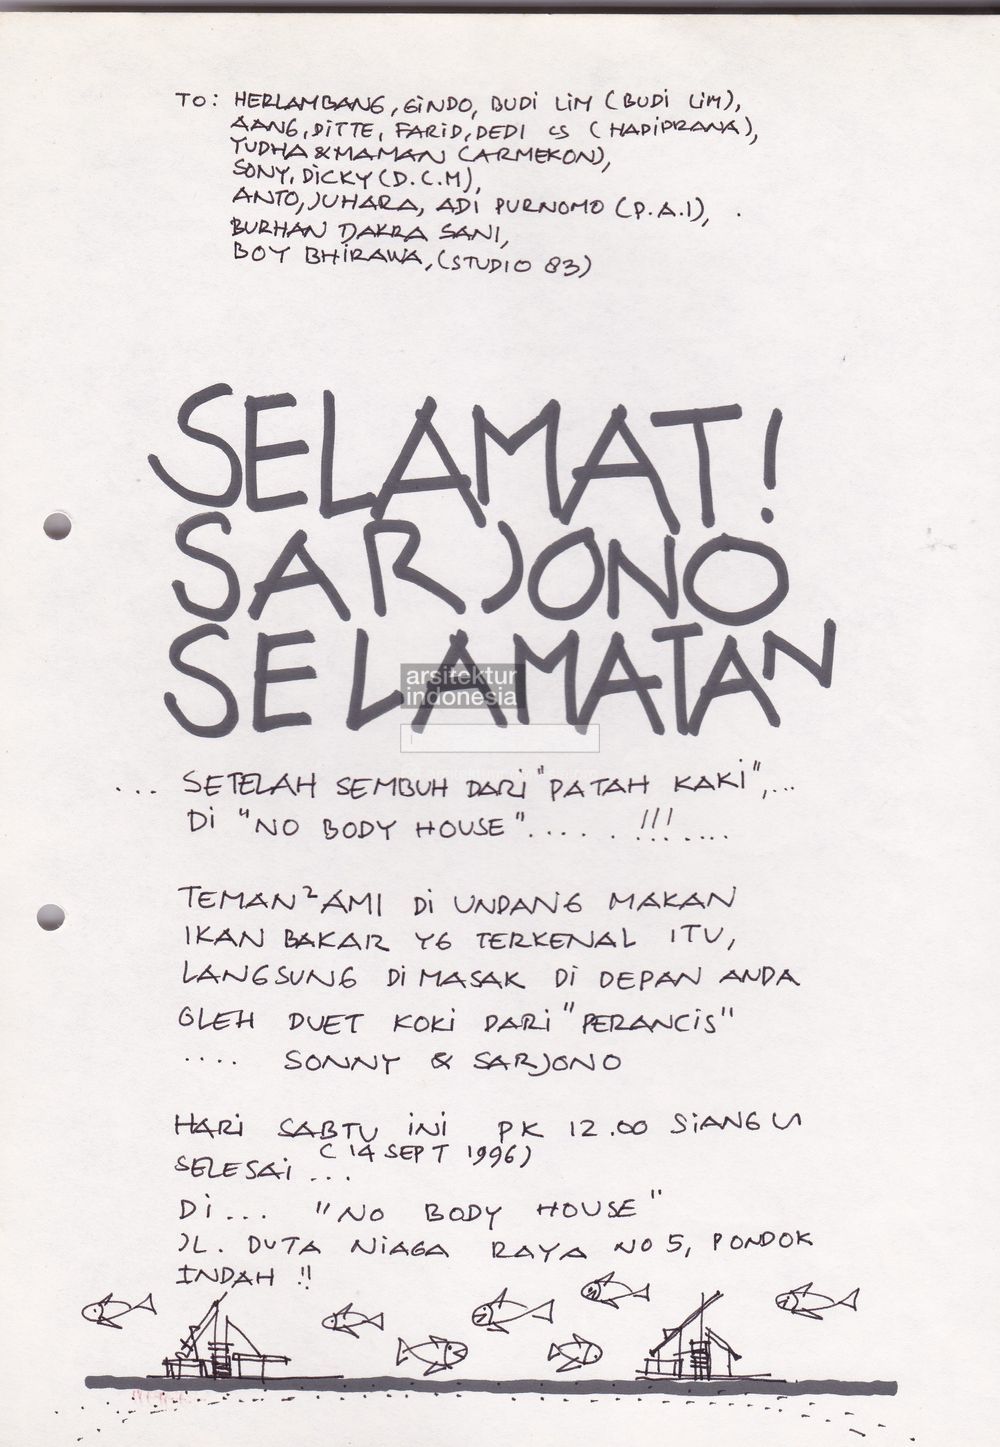 TO: HERLAMBANG, GINDO, BUDI LIM (BUDI LIM),
AANG, DITTE, FARID, DEDI CS (HADIPRANA),
YUDHA & MAMAN (ARMEKON),
SONY, DICKY (D.C.M),
ANTO, JUHARA, ADI PURNOMO (P.A.I),
BURHAN DAKRA SANI,
BOY BHIRAWA, (STUDIO 83)
SELAMAT!
SARJONO
SELAMATAN
arsitektur
indonesia
... SETELAH SEMBUH DARI "PATAH KAKI",...
DI "NO BODY HOUSE"..... !!!....
TEMAN² AMI DI UNDANG MAKAN
IKAN BAKAR YG TERKENAL ITU,
LANGSUNG DI MASAK DI DEPAN ANDA
OLEH DUET KOKI DARI "PERANCIS"
.... SONNY & SARJONO
HARI SABTU INI PK 12.00 SIANG
(14 SEPT 1996)
SELESAI ...
DI... "NO BODY HOUSE"
JL. DUTA NIAGA RAYA NO 5, PONDOK
INDAH !!